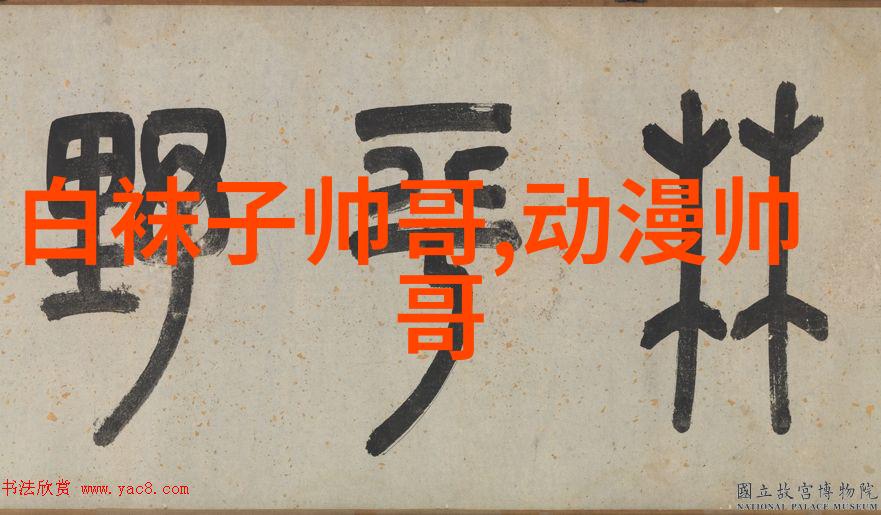 白袜子帅哥,动漫帅
哥
林
亏
野
书法欣赏 www.yac8.com
國立故宮博物院
NATIONAL PALACE MUSEUM